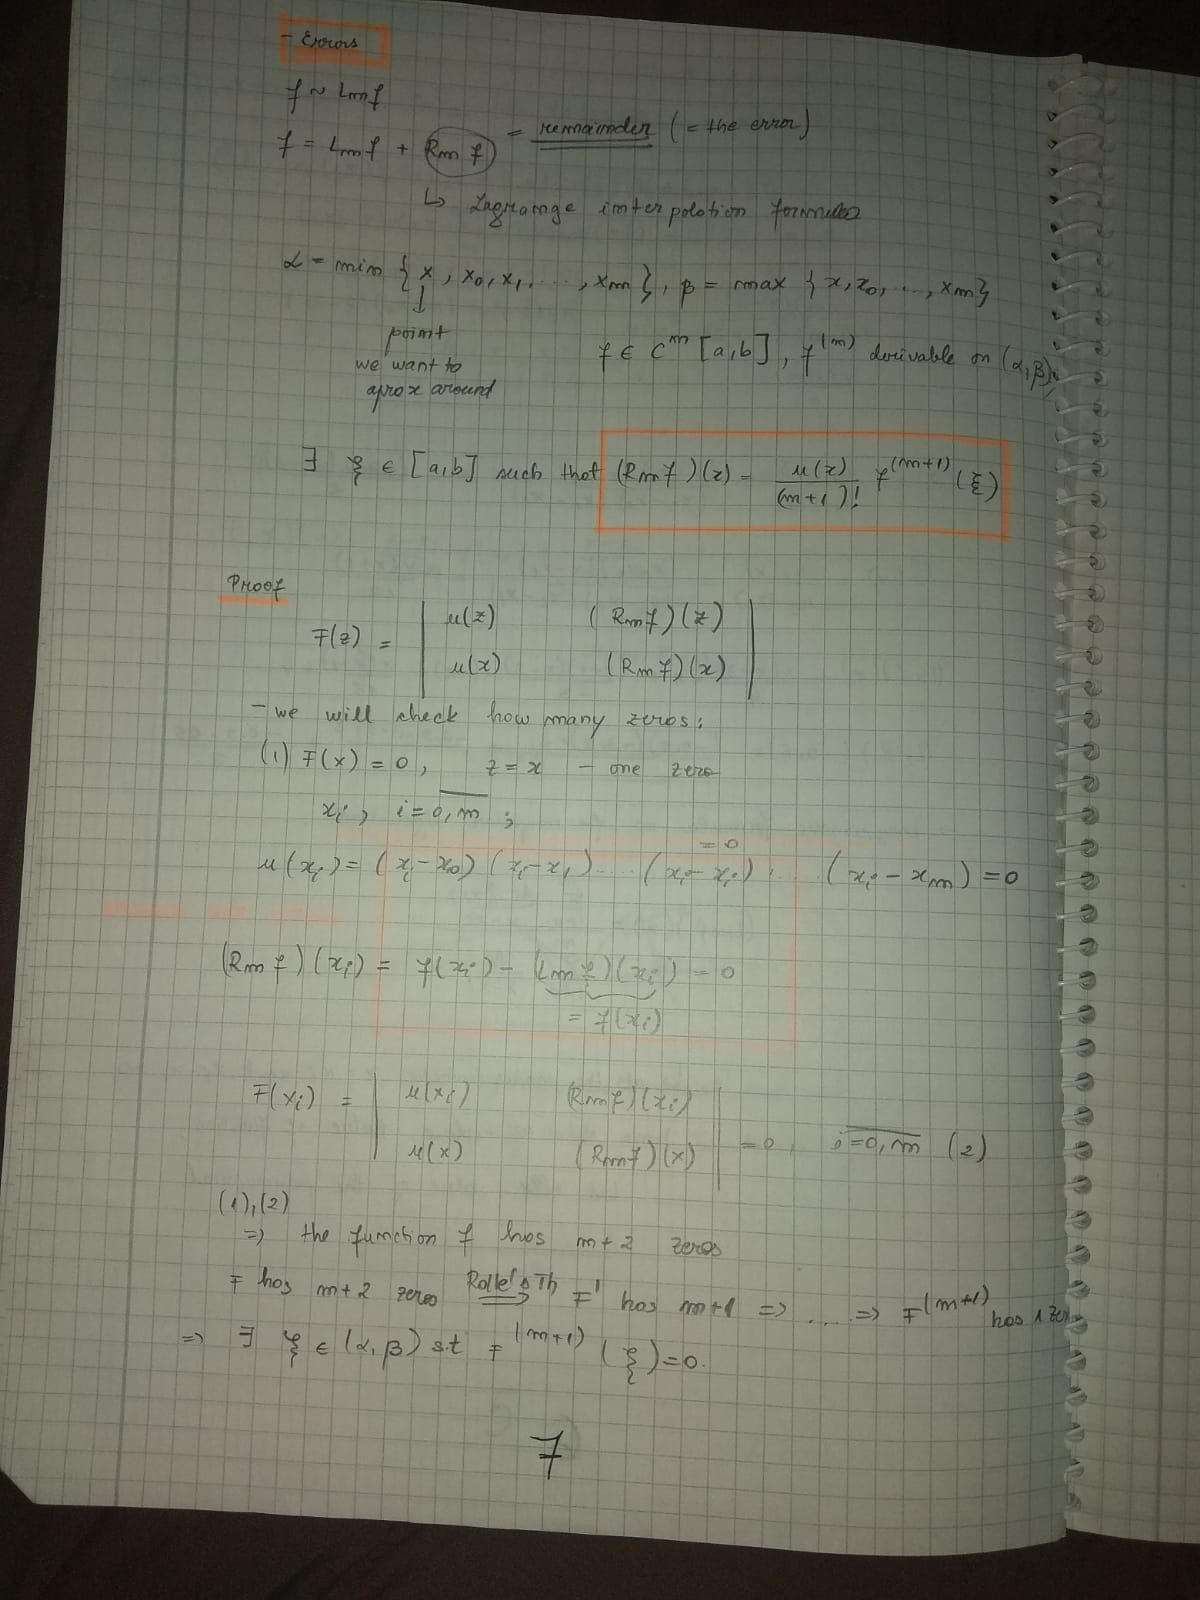 - Errors
f ~ Lmf
f = Lmf + Rmf = remainder (= the error)
↳ Lagrange interpolation formula
α = min {x, x0, x1, ..., xm}, β = max {x, x0, ..., xm}
↓
point
we want to
aprox around
f ∈ C^m [a,b], f^(m) derivable on (α,β)
∃ ξ ∈ [a,b] such that (Rmf)(x) = u(x)/(m+1)! f^(m+1)(ξ)
Proof
F(z) = | u(z) (Rmf)(z) |
| u(x) (Rmf)(x) |
- we will check how many zeros:
(1) F(x) = 0, z = x - one zero
xi, i = 0,m ;
= 0
u(xi) = (xi - x0)(xi - x1) .... (xi - xi) ... (xi - xm) = 0
(Rmf)(xi) = f(xi) - (Lmf)(xi) = 0
= f(xi)
F(xi) = | u(xi) (Rmf)(xi) |
| u(x) (Rmf)(x) | = 0, i = 0,m (2)
(1),(2)
=> the function f has m+2 zeros
F has m+2 zeros Rolle's Th => F' has m+1 => .... => F^(m+1) has 1 zero
=> ∃ ξ ∈ (α, β) s.t F^(m+1) (ξ) = 0.
7